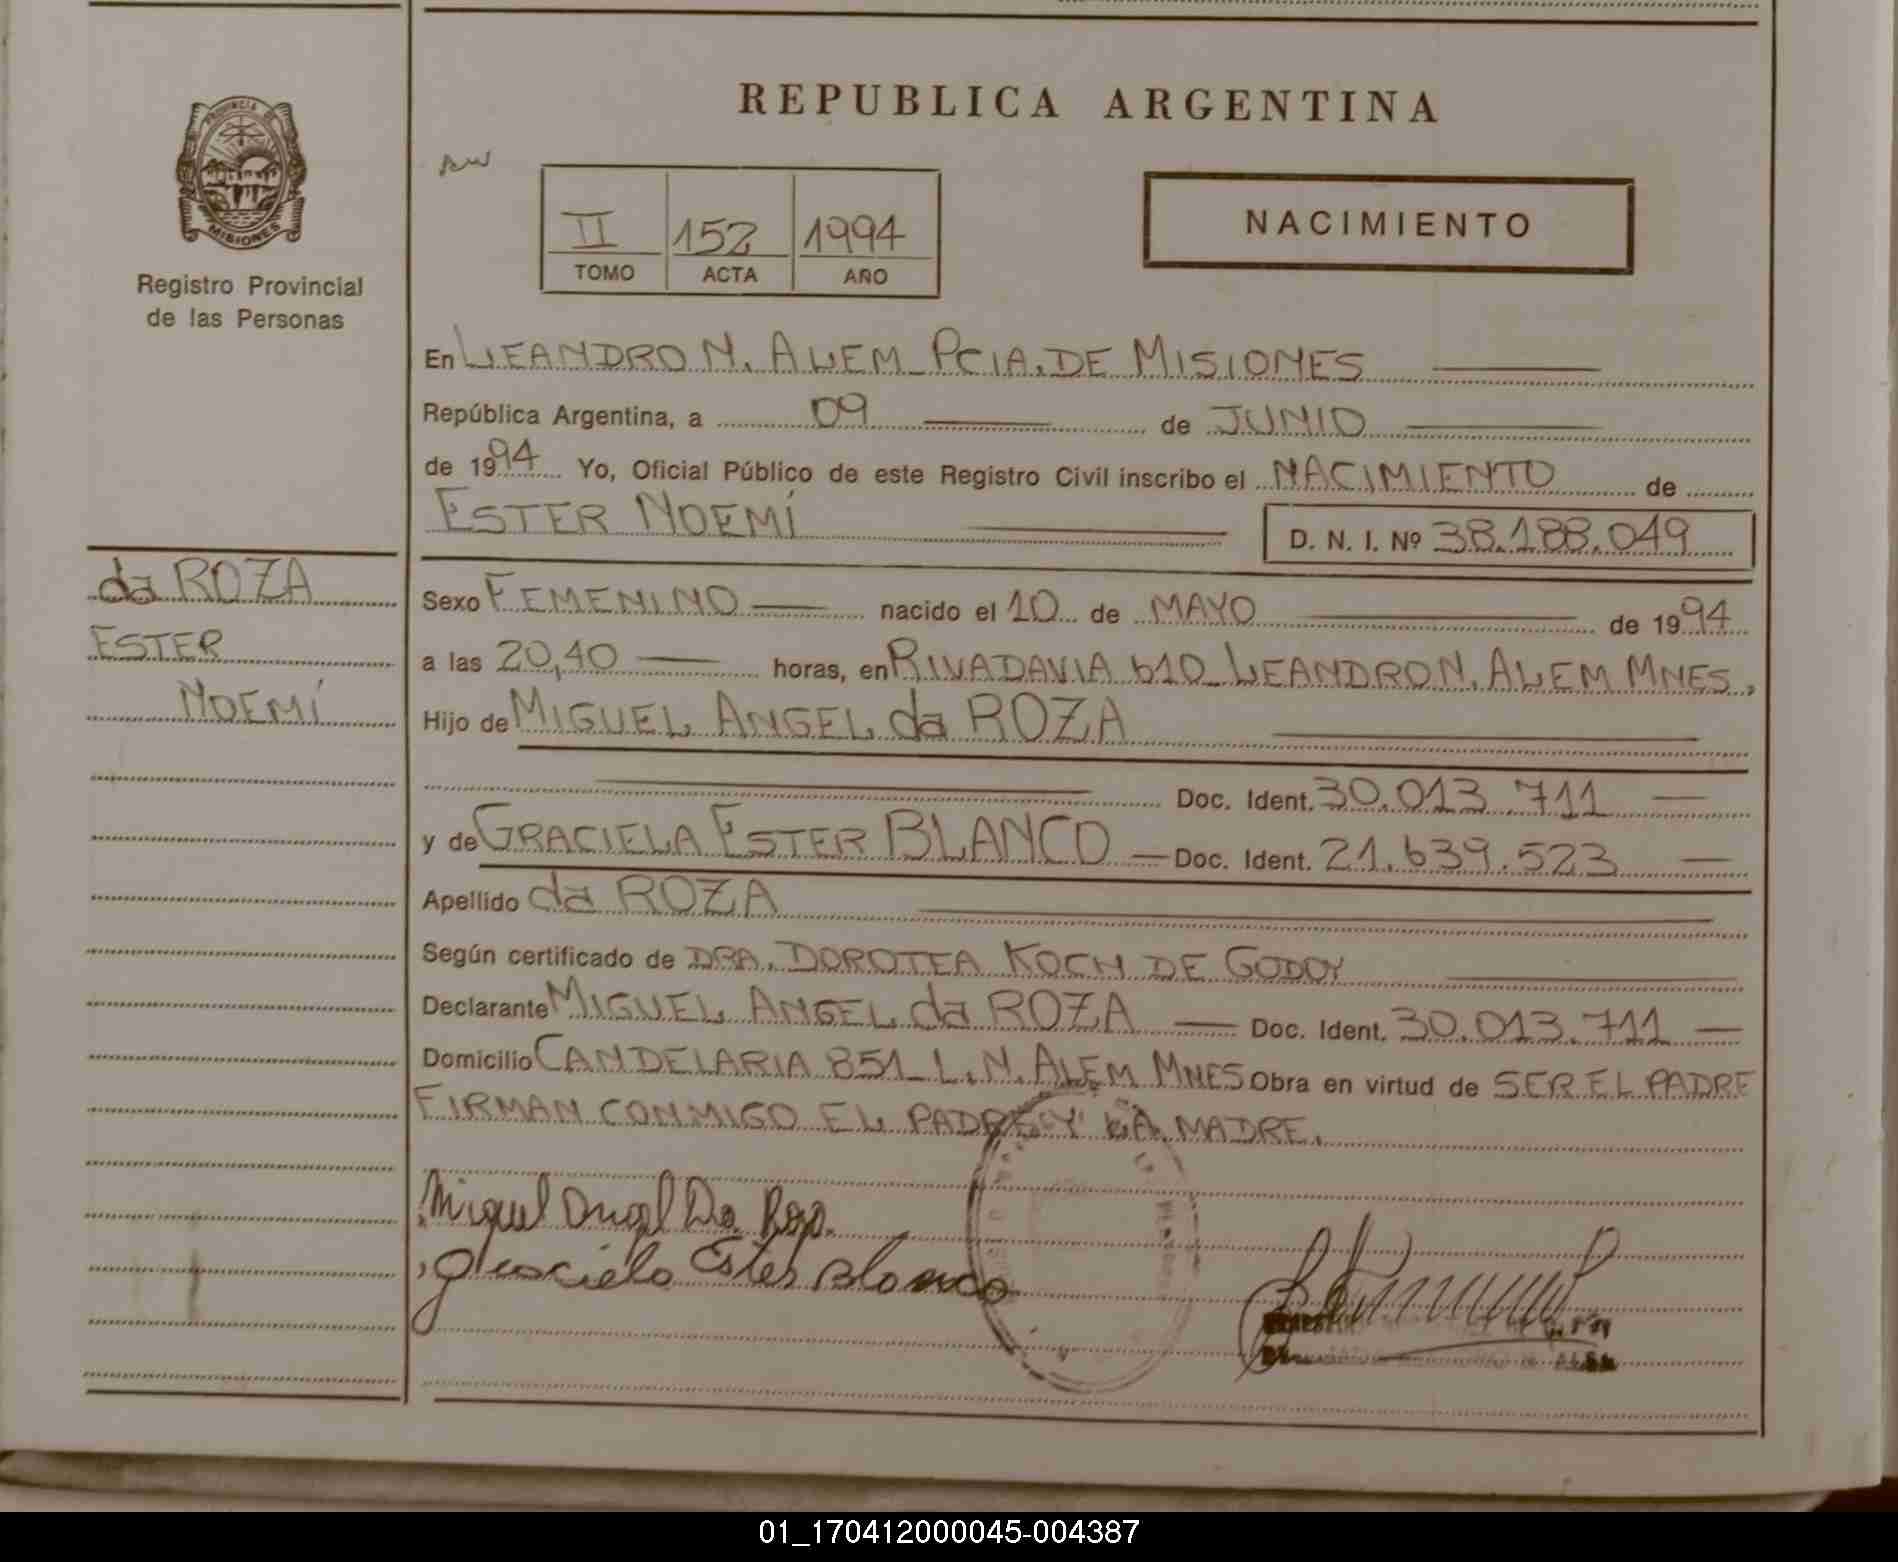 REPUBLICA ARGENTINA
PROVINCIA DE
MISIONES
Registro Provincial
de las Personas
II 152 1994
TOMO ACTA AÑO
NACIMIENTO
En LEANDRO N. ALEM_PCIA. DE MISIONES
República Argentina, a 09 de JUNIO
de 1994 Yo, Oficial Público de este Registro Civil inscribo el NACIMIENTO de
ESTER NOEMÍ
D. N. I. Nº 38.188.049
da ROZA
ESTER
NOEMÍ
Sexo FEMENINO nacido el 10 de MAYO de 1994
a las 20,40 horas, en RIVADAVIA 610_LEANDRO N. ALEM MNES,
Hijo de MIGUEL ANGEL da ROZA
Doc. Ident. 30.013.711
y de GRACIELA ESTER BLANCO Doc. Ident. 21.639.523
Apellido da ROZA
Según certificado de DRA. DOROTEA KOCH DE GODOY
Declarante MIGUEL ANGEL da ROZA Doc. Ident. 30.013.711
Domicilio CANDELARIA 851_L.N. ALEM MNES Obra en virtud de SER EL PADRE
FIRMAN CONMIGO EL PADRE Y LA MADRE.
Miguel Angel Da Roza.
Graciela Ester Blanco
01_170412000045-004387